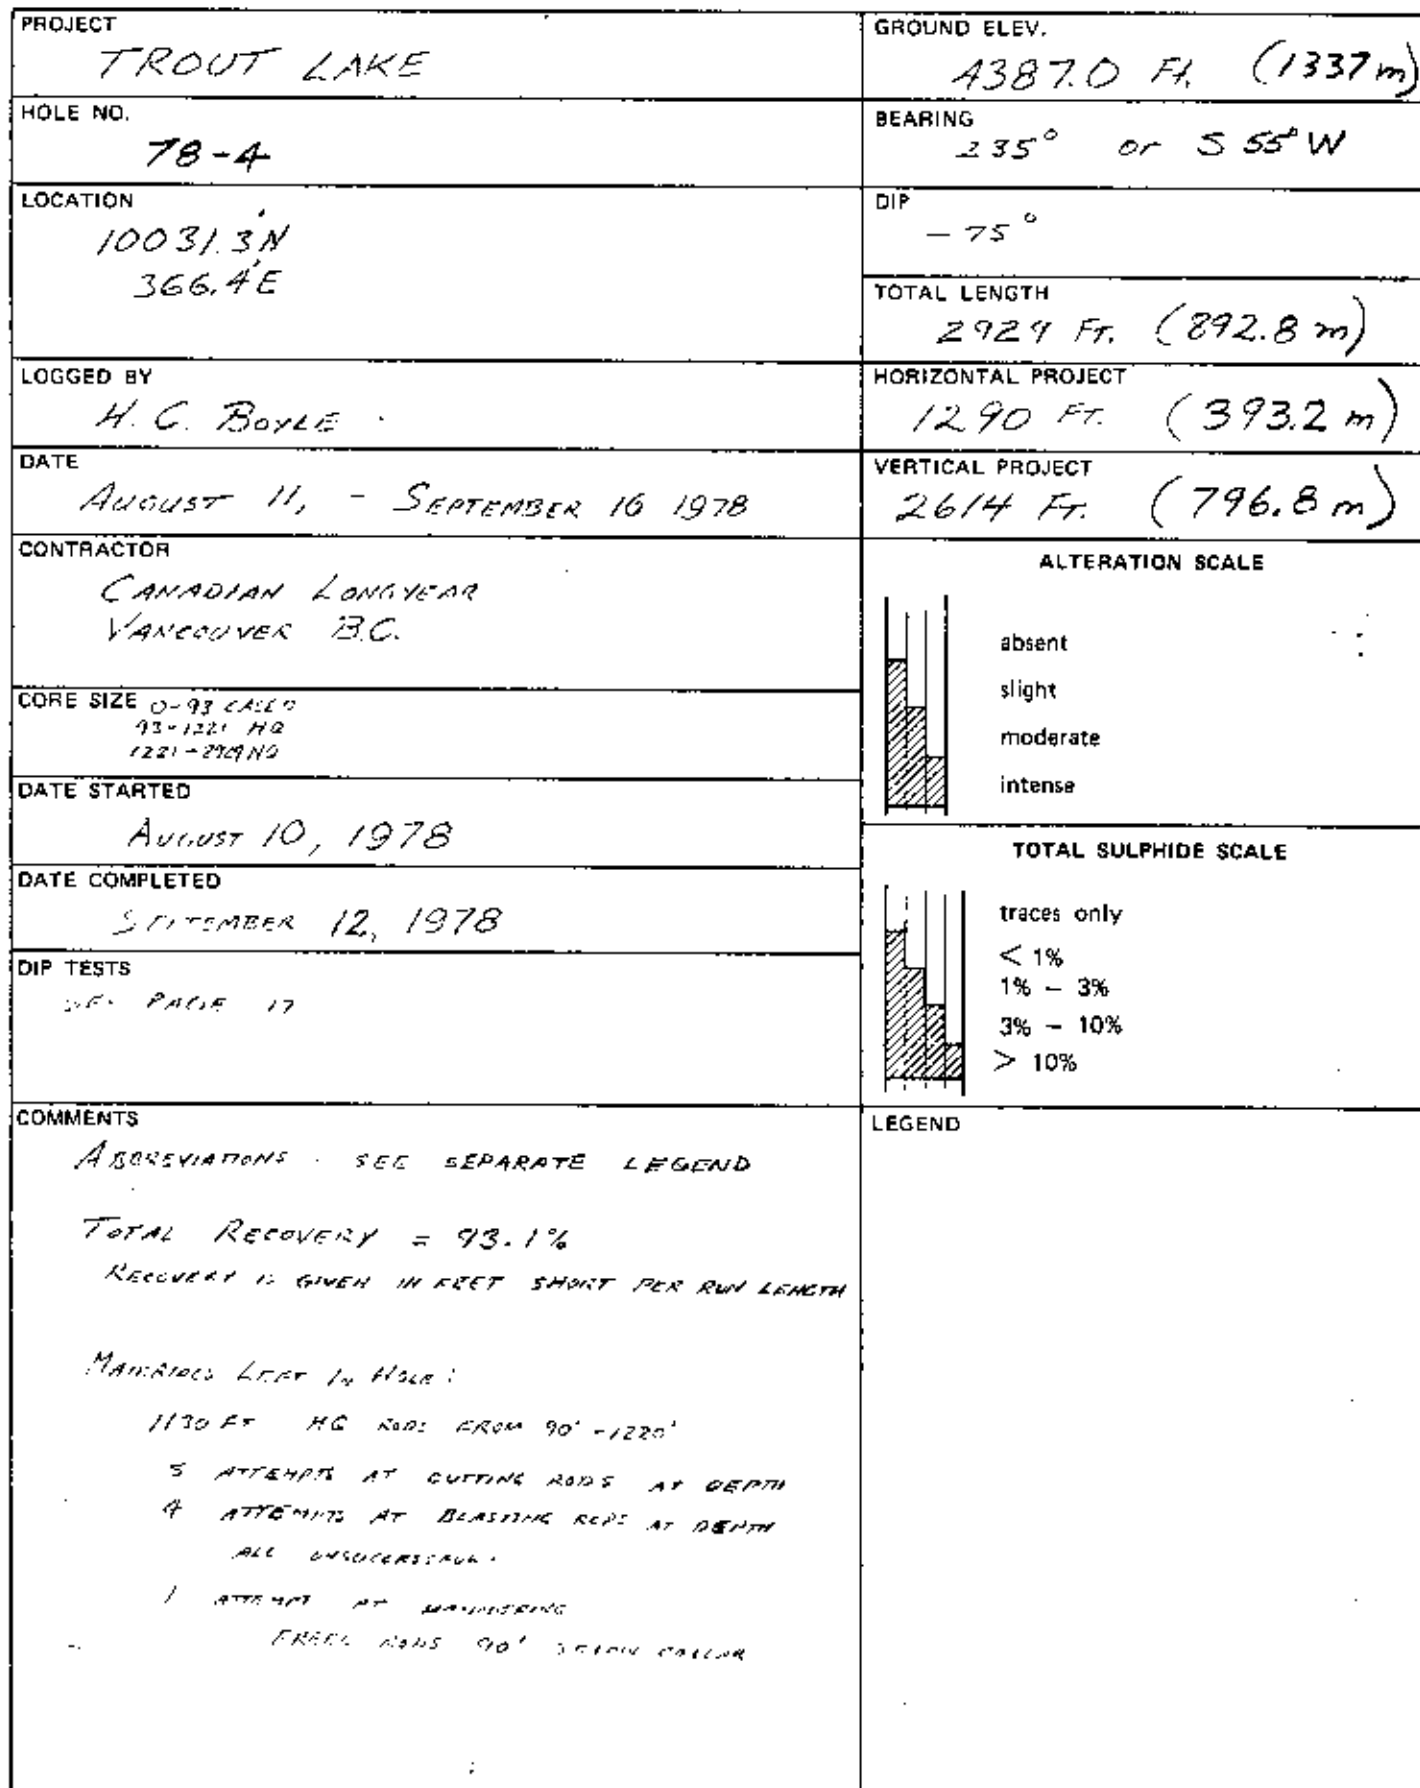 PROJECT
TROUT LAKE
HOLE NO.
78-4
LOCATION
10031.3'N
366.4'E
LOGGED BY
H. C. BOYLE
DATE
AUGUST 11, - SEPTEMBER 16 1978
CONTRACTOR
CANADIAN LONGYEAR
VANCOUVER B.C.
CORE SIZE 0-93 CASED
93-1221 HQ
1221-2929 NQ
DATE STARTED
AUGUST 10, 1978
DATE COMPLETED
SEPTEMBER 12, 1978
DIP TESTS
SEE PAGE 17
COMMENTS
ABBREVIATIONS - SEE SEPARATE LEGEND
TOTAL RECOVERY = 93.1%
RECOVERY IS GIVEN IN FEET SHORT PER RUN LENGTH
MATERIALS LEFT IN HOLE:
1130 FT HQ RODS FROM 90' - 1220'
5 ATTEMPTS AT CUTTING RODS AT DEPTH
4 ATTEMPTS AT BLASTING RODS AT DEPTH
ALL UNSUCCESSFUL.
1 ATTEMPT AT
FREED RODS 90' BELOW COLLAR
GROUND ELEV.
4387.0 Ft. (1337 m)
BEARING
235° or S 55° W
DIP
- 75°
TOTAL LENGTH
2929 FT. (892.8 m)
HORIZONTAL PROJECT
1290 FT. (393.2 m)
VERTICAL PROJECT
2614 FT. (796.8 m)
ALTERATION SCALE
absent
slight
moderate
intense
TOTAL SULPHIDE SCALE
traces only
< 1%
1% – 3%
3% – 10%
> 10%
LEGEND